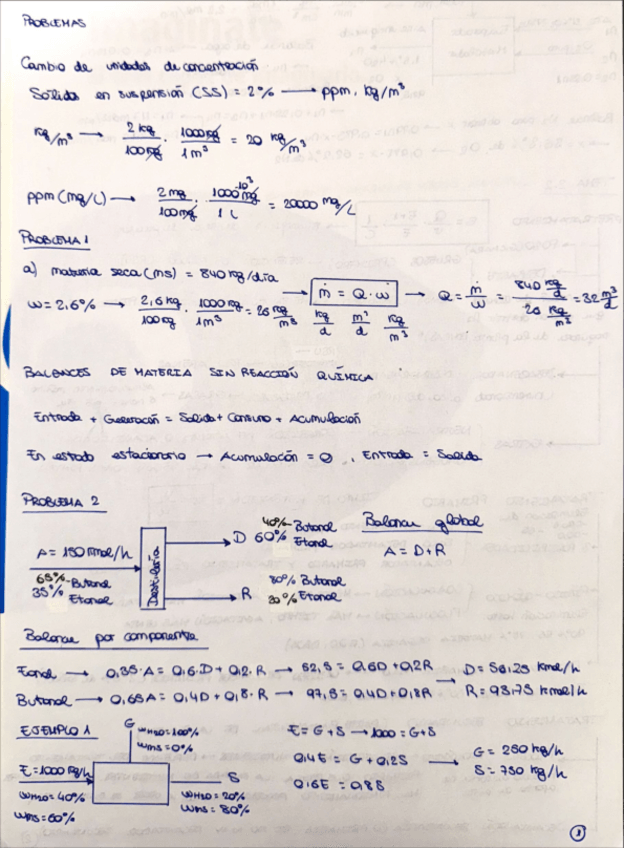 PROBLEMAS
Cambio de unidades de concentración
Sólidos en suspensión (SS) = 2% → ppm, kg/m³
kg/m³ → 2 kg/100 kg · 1000 kg/1 m³ = 20 kg/m³
ppm (mg/L) → 2 mg/100 mg · 1000·10³ mg/1 L = 20000 mg/L
PROBLEMA 1
a) materia seca (ms) = 840 kg/día
w = 2,6% → 2,6 kg/100 kg · 1000 kg/1 m³ = 26 kg/m³ → ṁ = Q · w → Q = ṁ/w = 840 kg/d / 26 kg/m³ = 32 m³/d
kg/d m³/d kg/m³
BALANCES DE MATERIA SIN REACCIÓN QUÍMICA
Entrada + Generación = Salida + Consumo + Acumulación
En estado estacionario → Acumulación = 0, Entrada = Salida
PROBLEMA 2
A = 150 kmol/h
65% Butanol
35% Etanol
Destilería
D
40% Butanol
60% Etanol
R
80% Butanol
20% Etanol
Balance global
A = D + R
Balance por componente
Etanol → 0,35·A = 0,6·D + 0,2·R → 52,5 = 0,6D + 0,2R → D = 56,25 kmol/h
Butanol → 0,65A = 0,4D + 0,8·R → 97,5 = 0,4D + 0,8R R = 93,75 kmol/h
EJEMPLO 1
G
wH2O = 100%
wMS = 0%
E = 1000 kg/h
wH2O = 40%
wMS = 60%
S
wH2O = 20%
wMS = 80%
E = G + S → 1000 = G + S
0,4E = G + 0,2S → G = 250 kg/h
0,6E = 0,8S S = 750 kg/h
1